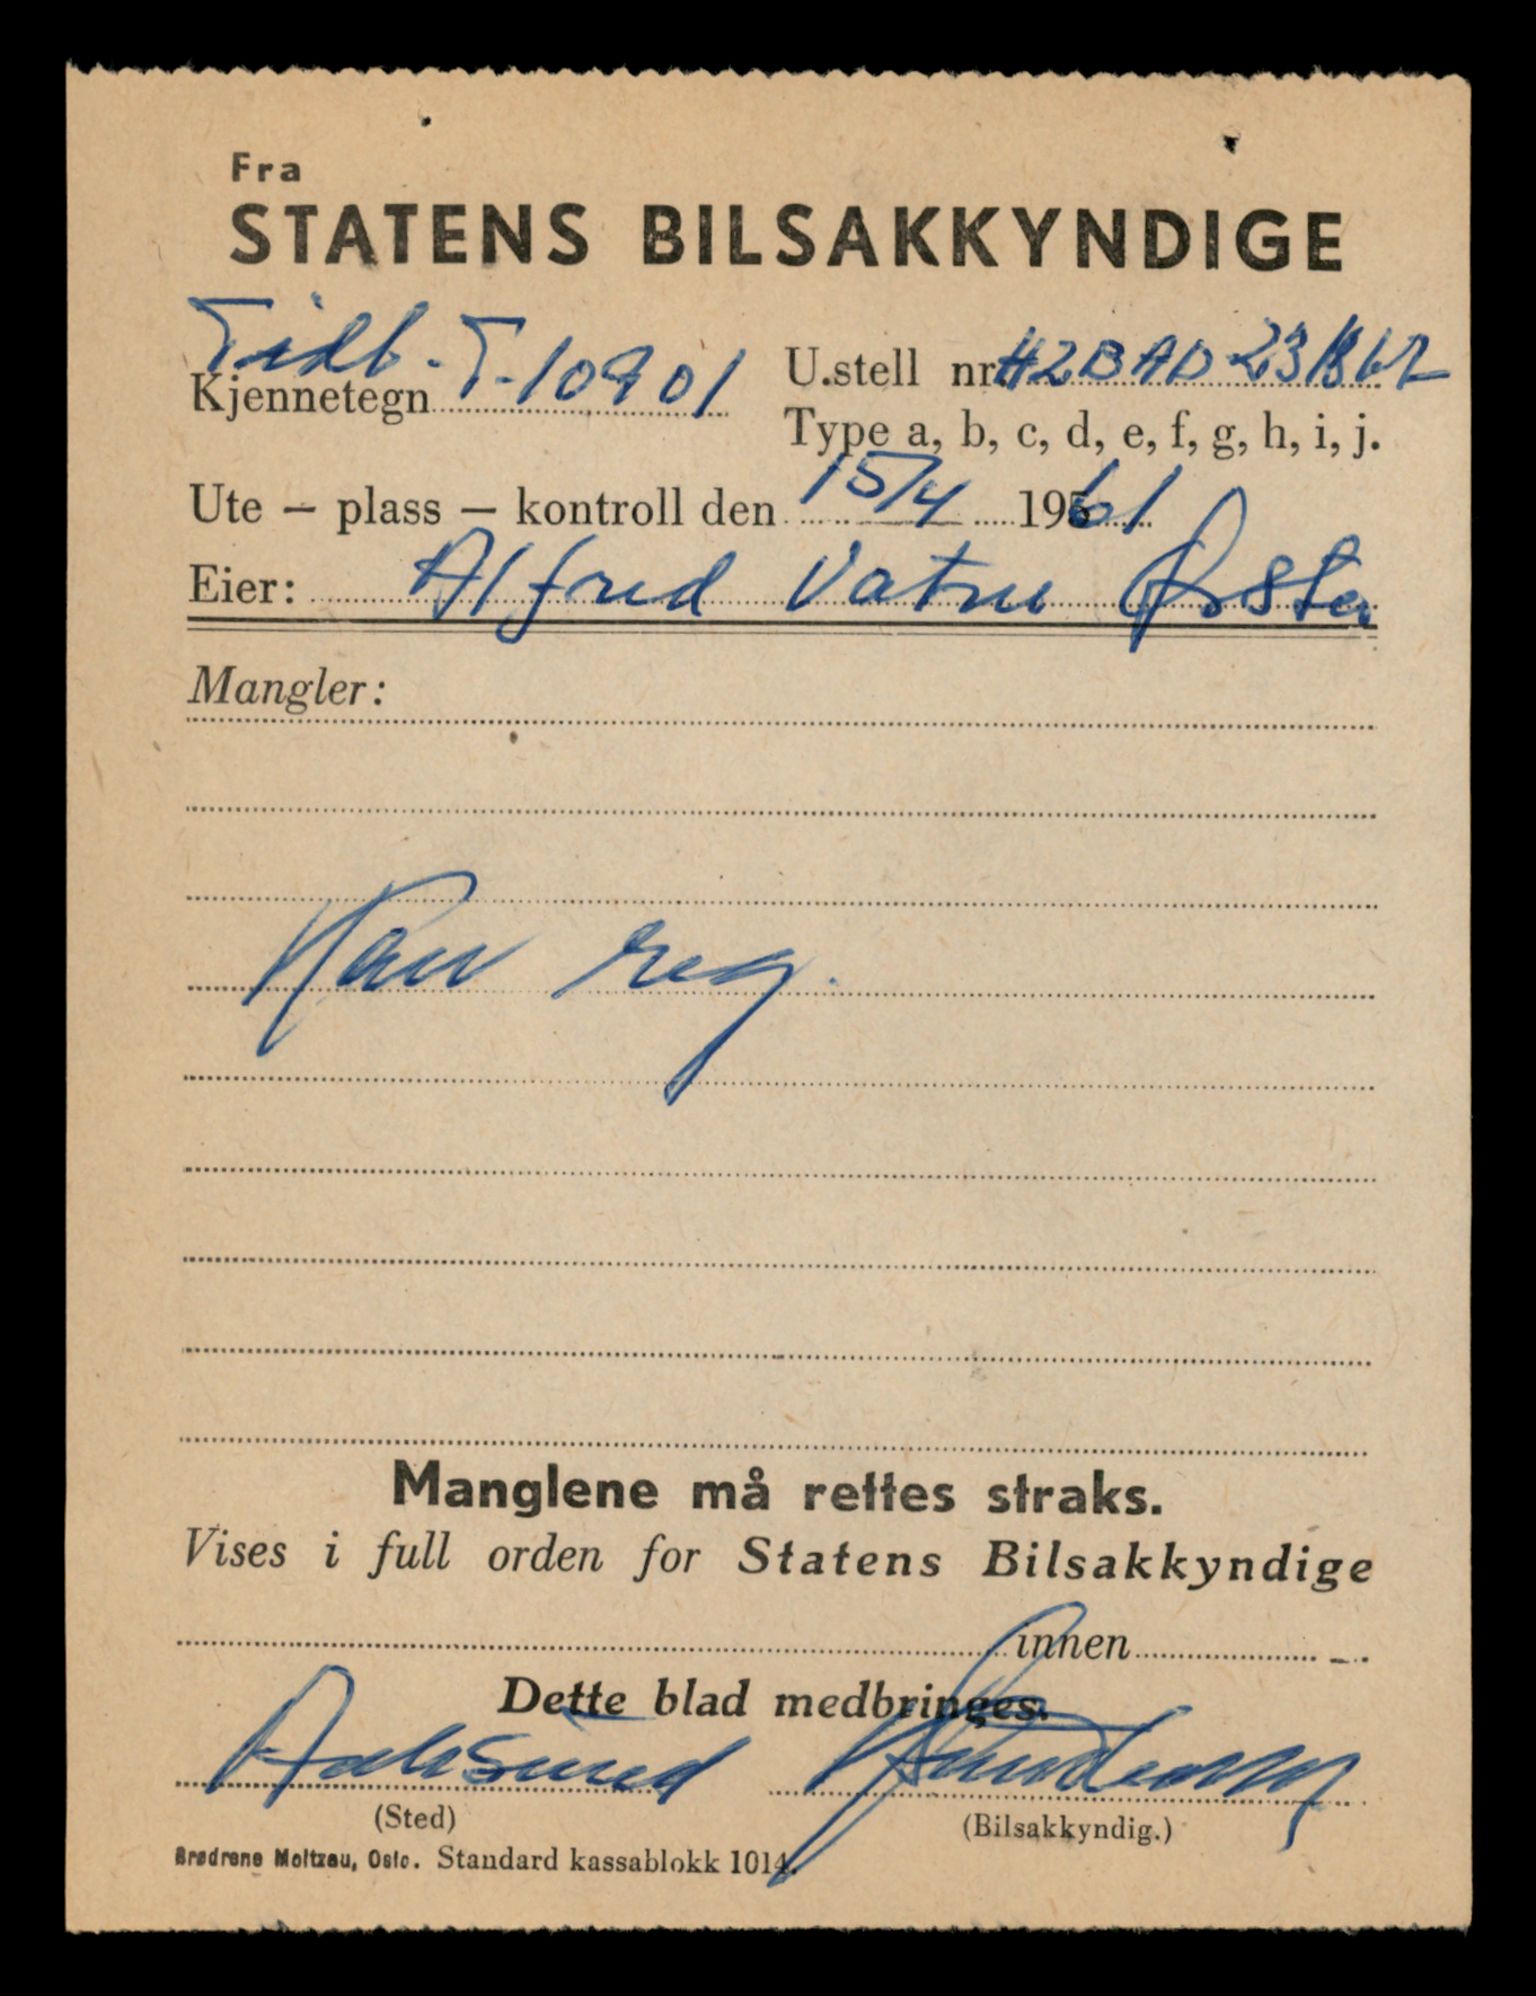 Fra
STATENS BILSAKKYNDIGE
Tidl. T-10901
Kjennetegn
U.stell nr. H2BAD-231862
Type a, b, c, d, e, f, g, h, i, j.
Ute – plass – kontroll den 15/4 1961
Eier: Alfred Vatne Ørsta
Mangler:
Kan reg.
Manglene må rettes straks.
Vises i full orden for Statens Bilsakkyndige
innen
Dette blad medbringes.
Aalesund
(Sted)
(Bilsakkyndig.)
Brødrene Moltzau, Oslo. Standard kassablokk 1014.